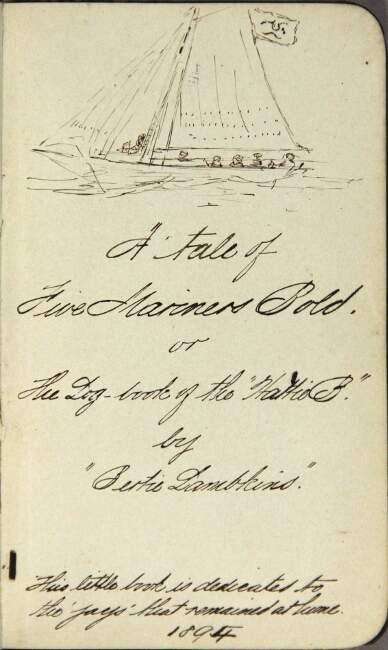 A tale of
Five Mariners Bold.
or
The Log-book of the "Hattie B."
by
"Bertie Lambkins."
This little book is dedicated to
the 'jays' that remained at home.
1894